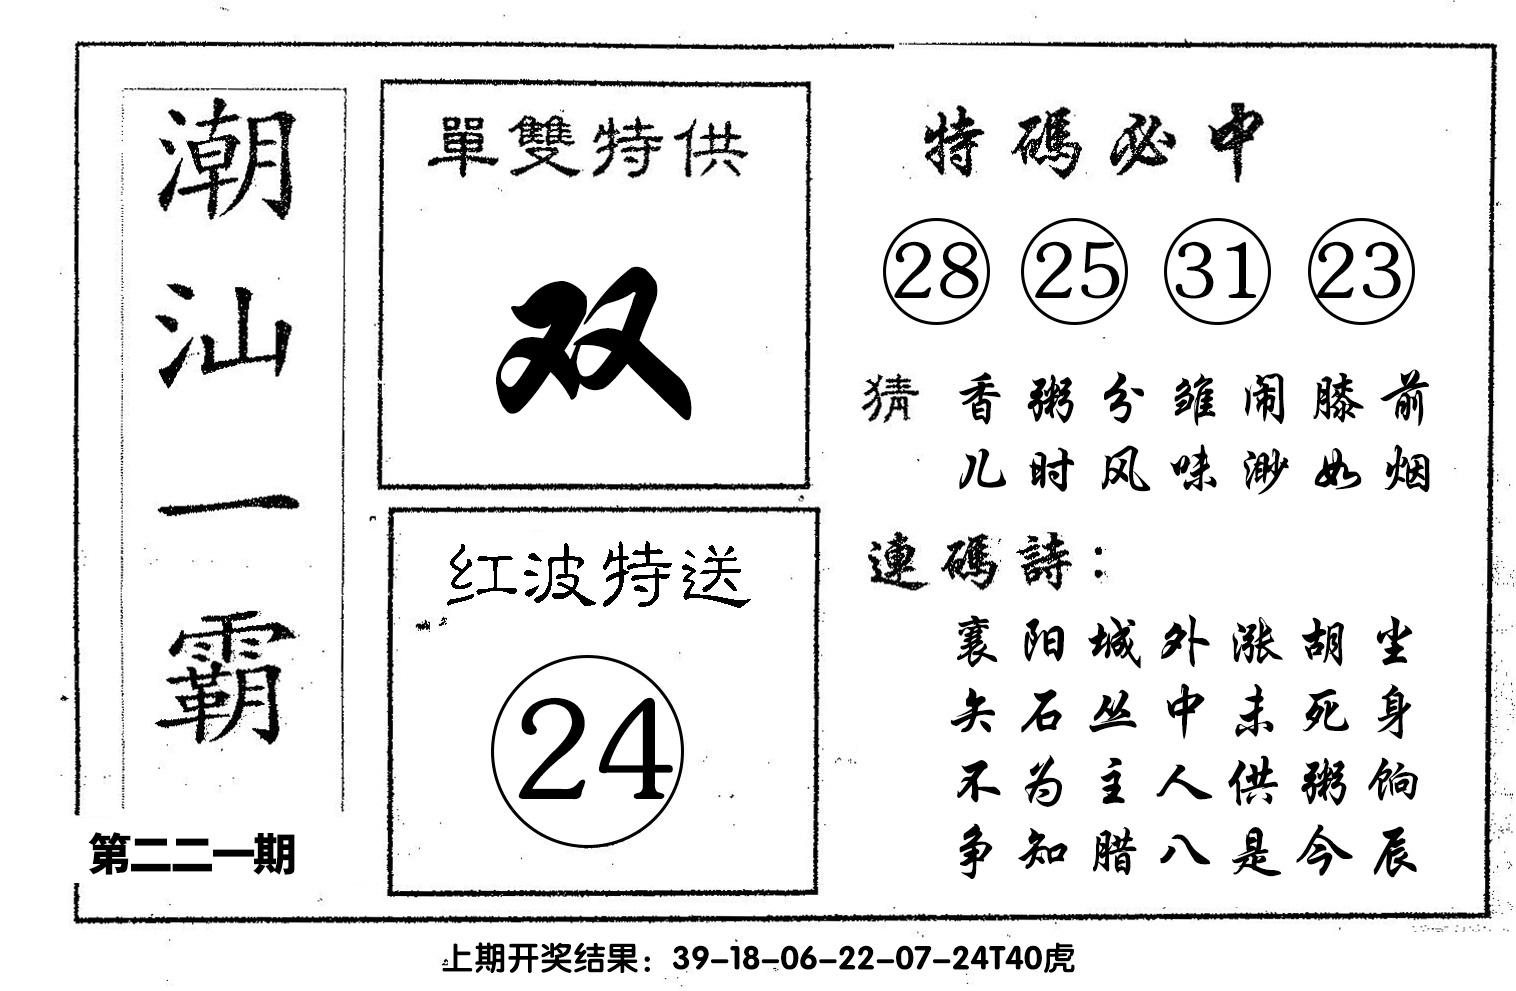 潮汕一霸
第二二一期
單雙特供
双
红波特送
24
特碼必中
28 25 31 23
猜 香粥分雏闹膝前
儿时风味渺如烟
連碼詩：
襄阳城外涨胡尘
矢石丛中未死身
不为主人供粥饷
争知腊八是今辰
上期开奖结果：39-18-06-22-07-24T40虎